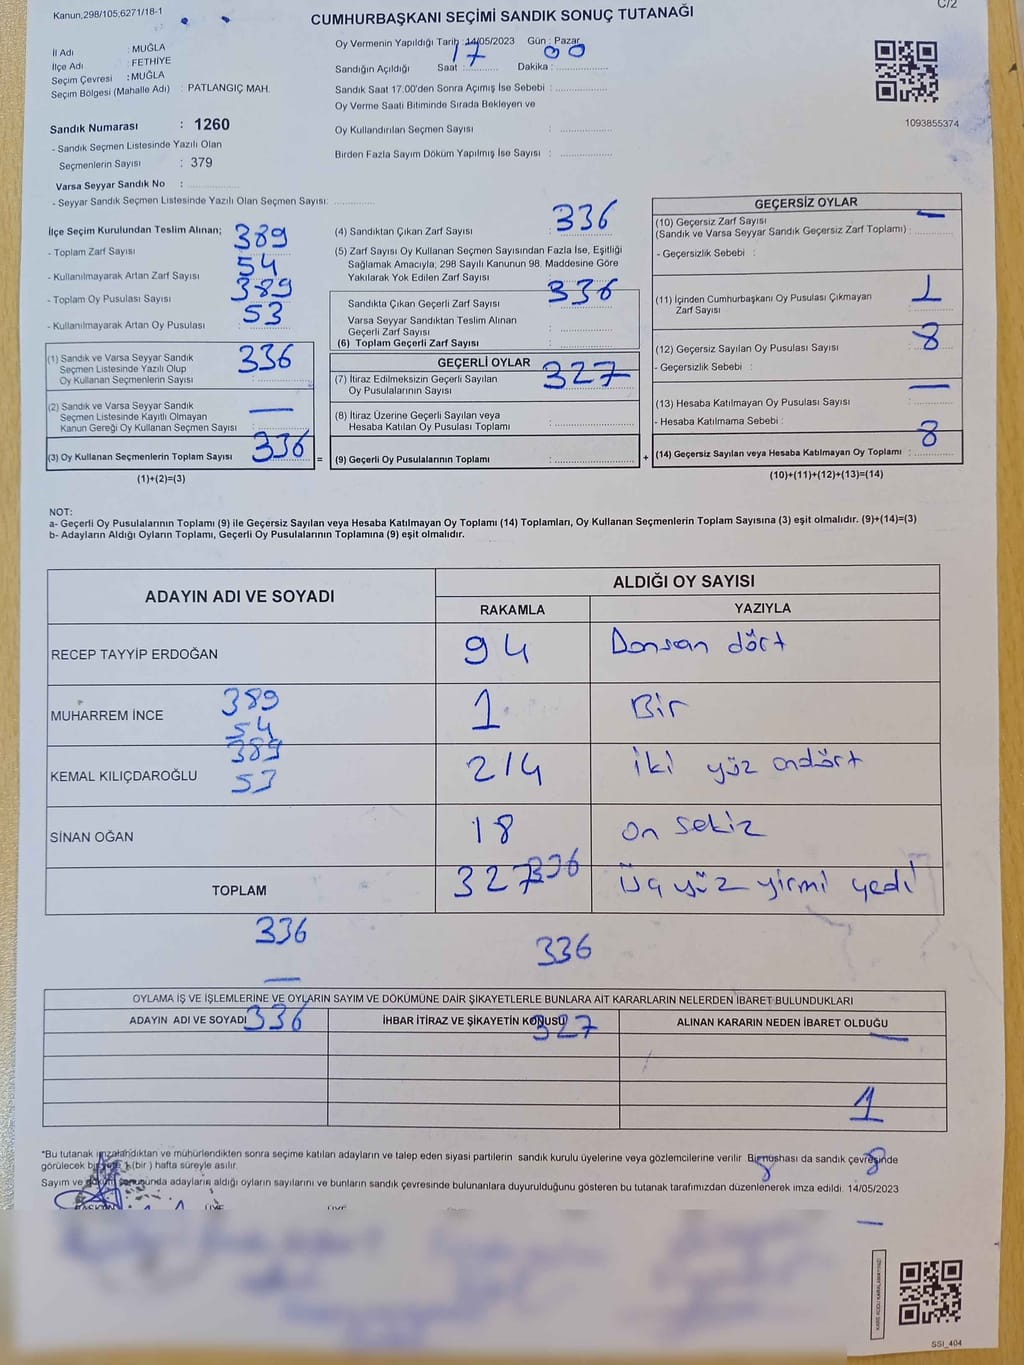 Kanun,298/105,6271/18-1
C/2
CUMHURBAŞKANI SEÇİMİ SANDIK SONUÇ TUTANAĞI
İl Adı : MUĞLA
İlçe Adı : FETHİYE
Seçim Çevresi : MUĞLA
Seçim Bölgesi (Mahalle Adı) : PATLANGIÇ MAH.
Sandık Numarası : 1260
- Sandık Seçmen Listesinde Yazılı Olan
Seçmenlerin Sayısı : 379
Varsa Seyyar Sandık No :
- Seyyar Sandık Seçmen Listesinde Yazılı Olan Seçmen Sayısı:
Oy Vermenin Yapıldığı Tarih : 14/05/2023 Gün : Pazar
Sandığın Açıldığı Saat : 17 Dakika : 00
Sandık Saat 17.00'den Sonra Açımış İse Sebebi :
Oy Verme Saati Bitiminde Sırada Bekleyen ve
Oy Kullandırılan Seçmen Sayısı :
Birden Fazla Sayım Döküm Yapılmış İse Sayısı :
1093855374
İlçe Seçim Kurulundan Teslim Alınan;
- Toplam Zarf Sayısı 389
- Kullanılmayarak Artan Zarf Sayısı 54
- Toplam Oy Pusulası Sayısı 389
- Kullanılmayarak Artan Oy Pusulası 53
(1) Sandık ve Varsa Seyyar Sandık
Seçmen Listesinde Yazılı Olup
Oy Kullanan Seçmenlerin Sayısı : 336
(2) Sandık ve Varsa Seyyar Sandık
Seçmen Listesinde Kayıtlı Olmayan
Kanun Gereği Oy Kullanan Seçmen Sayısı : —
(3) Oy Kullanan Seçmenlerin Toplam Sayısı 336
(1)+(2)=(3)
(4) Sandıktan Çıkan Zarf Sayısı 336
(5) Zarf Sayısı Oy Kullanan Seçmen Sayısından Fazla İse, Eşitliği
Sağlamak Amacıyla, 298 Sayılı Kanunun 98. Maddesine Göre
Yakılarak Yok Edilen Zarf Sayısı :
Sandıkta Çıkan Geçerli Zarf Sayısı 336
Varsa Seyyar Sandıktan Teslim Alınan
Geçerli Zarf Sayısı :
(6) Toplam Geçerli Zarf Sayısı :
GEÇERLİ OYLAR
(7) İtiraz Edilmeksizin Geçerli Sayılan
Oy Pusulalarının Sayısı 327
(8) İtiraz Üzerine Geçerli Sayılan veya
Hesaba Katılan Oy Pusulası Toplamı :
= (9) Geçerli Oy Pusulalarının Toplamı :
GEÇERSİZ OYLAR
(10) Geçersiz Zarf Sayısı —
(Sandık ve Varsa Seyyar Sandık Geçersiz Zarf Toplamı) :
- Geçersizlik Sebebi :
(11) İçinden Cumhurbaşkanı Oy Pusulası Çıkmayan
Zarf Sayısı : 1
(12) Geçersiz Sayılan Oy Pusulası Sayısı : 8
- Geçersizlik Sebebi :
(13) Hesaba Katılmayan Oy Pusulası Sayısı : —
- Hesaba Katılmama Sebebi :
+ (14) Geçersiz Sayılan veya Hesaba Katılmayan Oy Toplamı : 8
(10)+(11)+(12)+(13)=(14)
NOT:
a- Geçerli Oy Pusulalarının Toplamı (9) ile Geçersiz Sayılan veya Hesaba Katılmayan Oy Toplamı (14) Toplamları, Oy Kullanan Seçmenlerin Toplam Sayısına (3) eşit olmalıdır. (9)+(14)=(3)
b- Adayların Aldığı Oyların Toplamı, Geçerli Oy Pusulalarının Toplamına (9) eşit olmalıdır.
ADAYIN ADI VE SOYADI
ALDIĞI OY SAYISI
RAKAMLA YAZIYLA
RECEP TAYYİP ERDOĞAN 94 Donsan dört
MUHARREM İNCE 1 Bir
389
54
389
KEMAL KILIÇDAROĞLU 214 iki yüz ondört
53
SİNAN OĞAN 18 on sekiz
TOPLAM 327 336 Üç yüz yirmi yedi
336 336
—
OYLAMA İŞ VE İŞLEMLERİNE VE OYLARIN SAYIM VE DÖKÜMÜNE DAİR ŞİKAYETLERLE BUNLARA AİT KARARLARIN NELERDEN İBARET BULUNDUKLARI
ADAYIN ADI VE SOYADI 336 İHBAR İTİRAZ VE ŞİKAYETİN KONUSU 327 ALINAN KARARIN NEDEN İBARET OLDUĞU
—
1
*Bu tutanak imzalandıktan ve mühürlendikten sonra seçime katılan adayların ve talep eden siyasi partilerin sandık kurulu üyelerine veya gözlemcilerine verilir. Bir nüshası da sandık çevresinde
görülecek bir yere 1 (bir ) hafta süreyle asılır.
8 8
Sayım ve döküm sonusunda adayların aldığı oyların sayılarını ve bunların sandık çevresinde bulunanlara duyurulduğunu gösteren bu tutanak tarafımızdan düzenlenerek imza edildi. 14/05/2023
BAŞKAN ÜYE ÜYE
—
SSİ_404